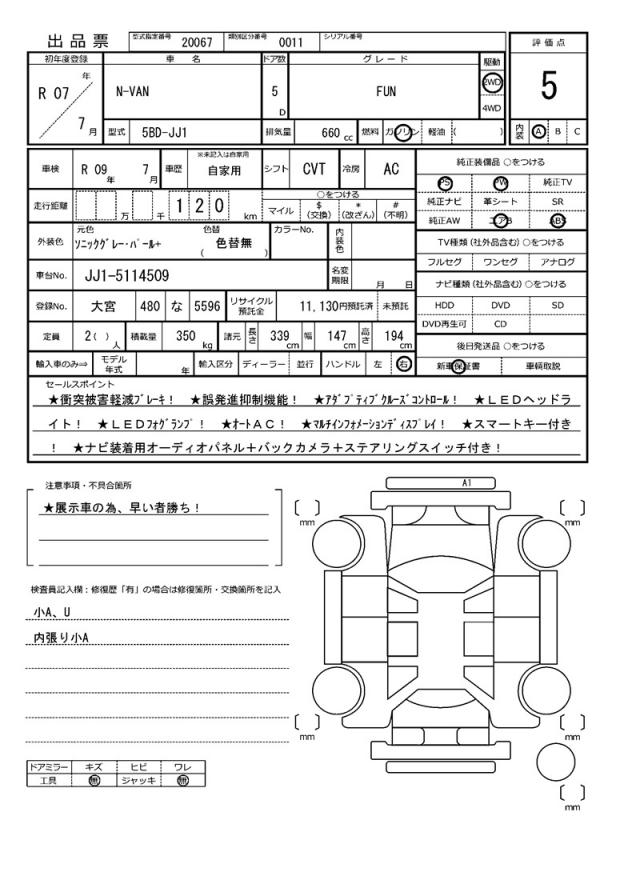 出品票 型式指定番号 20067 類別区分番号 0011 シリアル番号
評価点
初年度登録 車名 ドア数 グレード 駆動
R 07 年 7 月 N-VAN 5 D FUN 2WD 4WD
5
型式 5BD-JJ1 排気量 660 cc 燃料 ガソリン 軽油 ( ) 内装 A B C
車検 R 09 年 7 月 車歴 ※未記入は自家用 自家用 シフト CVT 冷房 AC
走行距離 万 千 1 2 0 km ○をつける
マイル $ (交換) * (改ざん) # (不明)
外装色 元色 ソニックグレー・パール+ 色替 ( 色替無 ) カラーNo. 内装色
車台No. JJ1-5114509 名変期限 月 日
登録No. 大宮 480 な 5596 リサイクル預託金 11,130円預託済 未預託
定員 2( )人 積載量 350 kg 諸元 長さ 339 cm 幅 147 cm 高さ 194 cm
輸入車のみ⇒ モデル年式 年 輸入区分 ディーラー 並行 ハンドル 左 右
純正装備品 ○をつける
PS PW 純正TV
純正ナビ 革シート SR
純正AW エアB ABS
TV種類 (社外品含む) ○をつける
フルセグ ワンセグ アナログ
ナビ種類 (社外品含む) ○をつける
HDD DVD SD
DVD再生可 CD
後日発送品 ○をつける
新車保証書 車輌取説
セールスポイント
★衝突被害軽減ブレーキ! ★誤発進抑制機能! ★アダプティブクルーズコントロール! ★LEDヘッドラ
イト! ★LEDフォグランプ! ★オートAC! ★マルチインフォメーションディスプレイ! ★スマートキー付き
! ★ナビ装着用オーディオパネル+バックカメラ+ステアリングスイッチ付き!
注意事項・不具合箇所
★展示車の為、早い者勝ち!
検査員記入欄:修復歴「有」の場合は修復箇所・交換箇所を記入
小A、U
内張り小A
ドアミラー キズ ヒビ ワレ
工具 無 ジャッキ 無
A1
[ ] mm
[ ] mm
[ ] mm
[ ] mm
[ ] mm